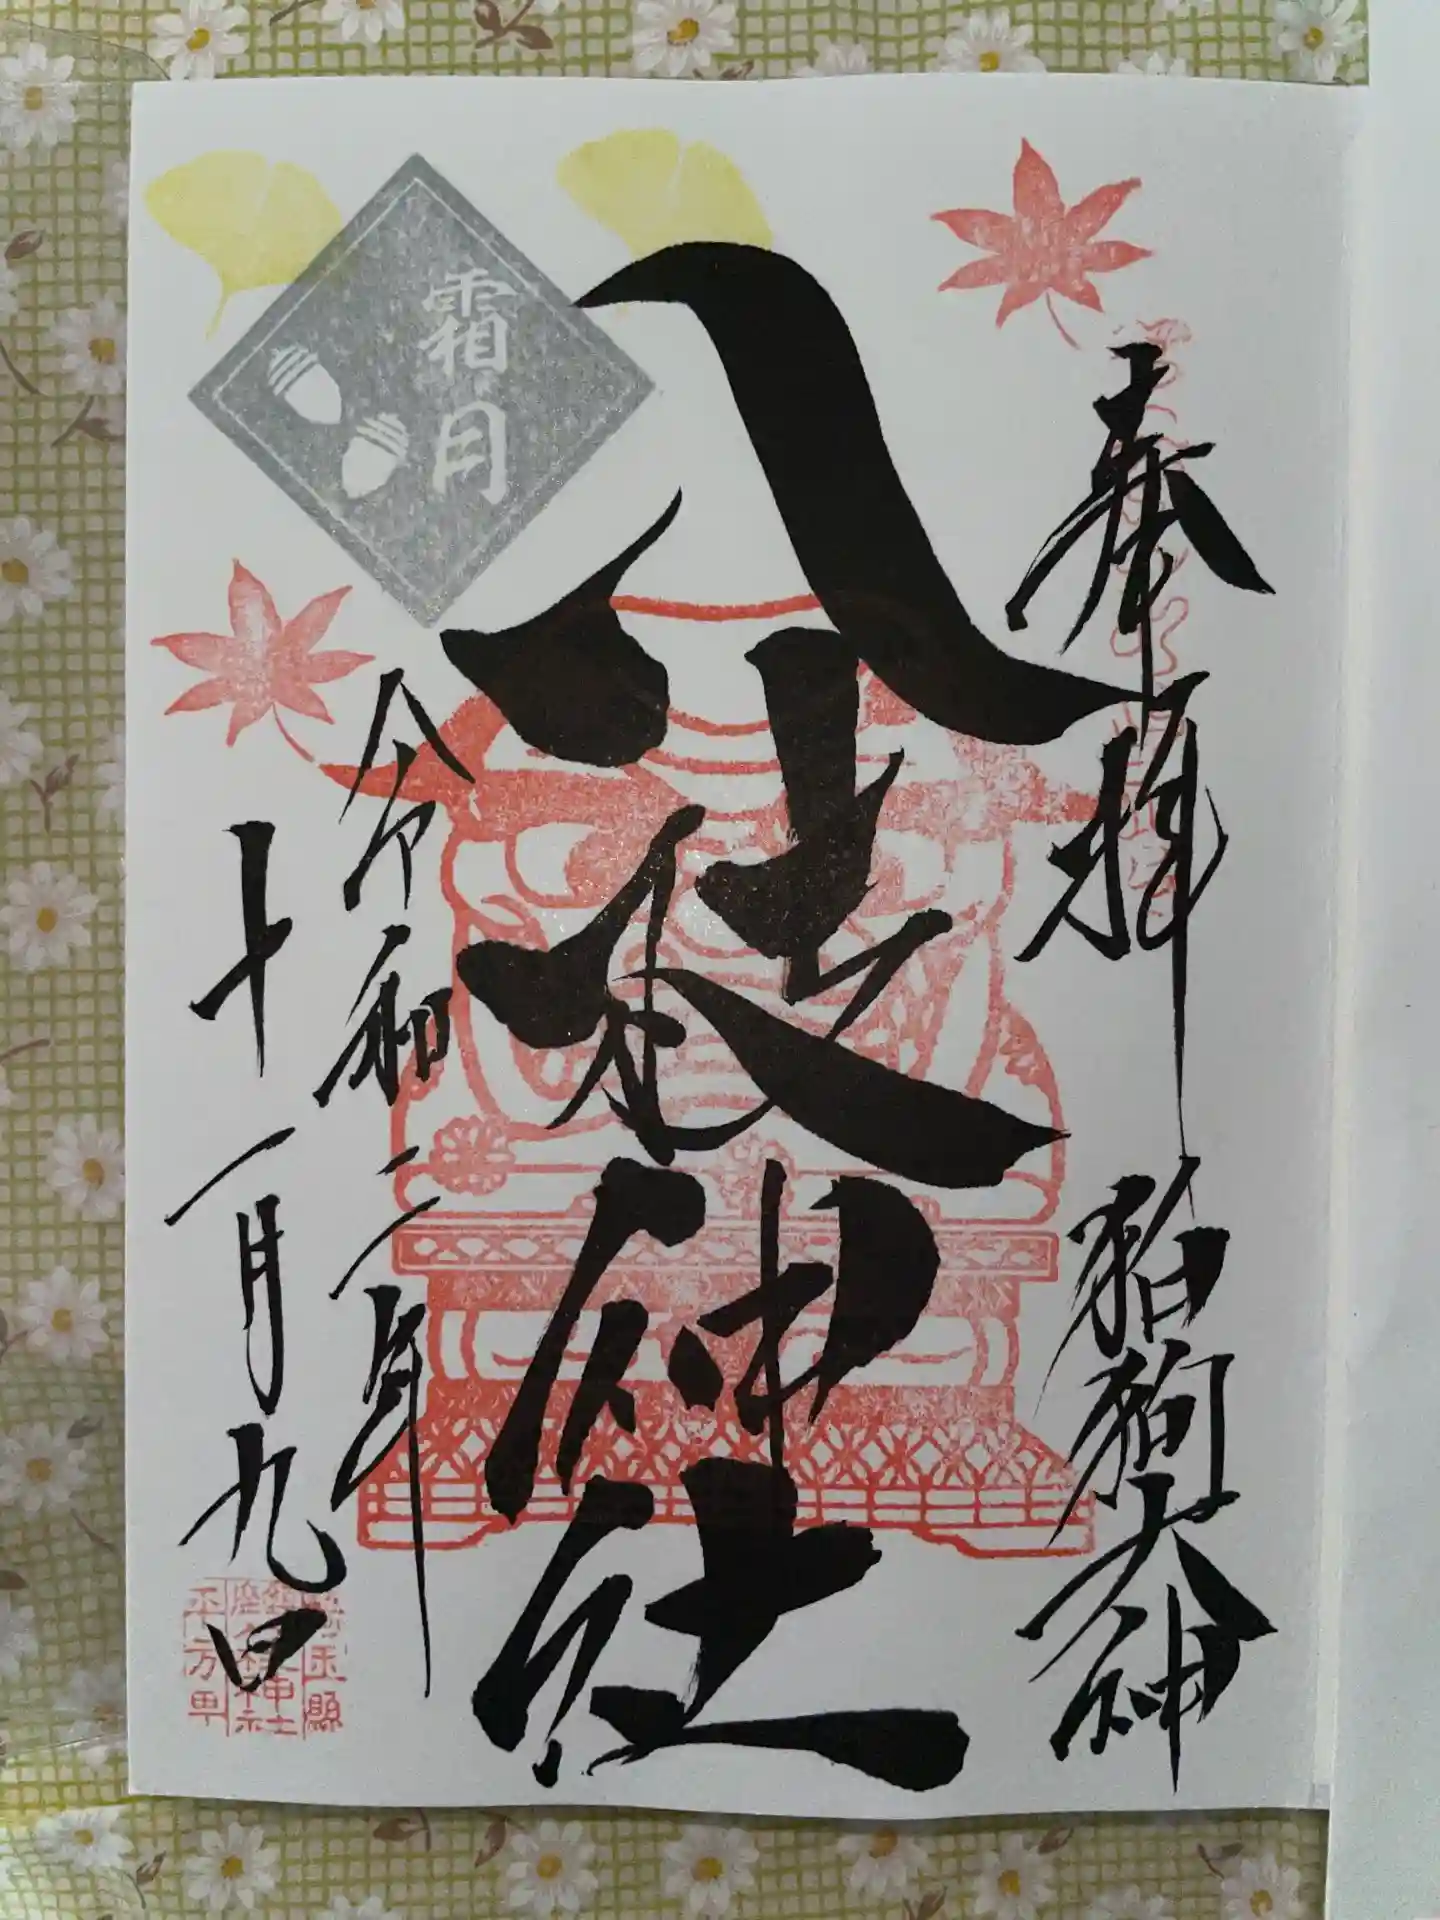 奉拝 狛狗大神
八枝神社
霜月
令和二年
十一月九日